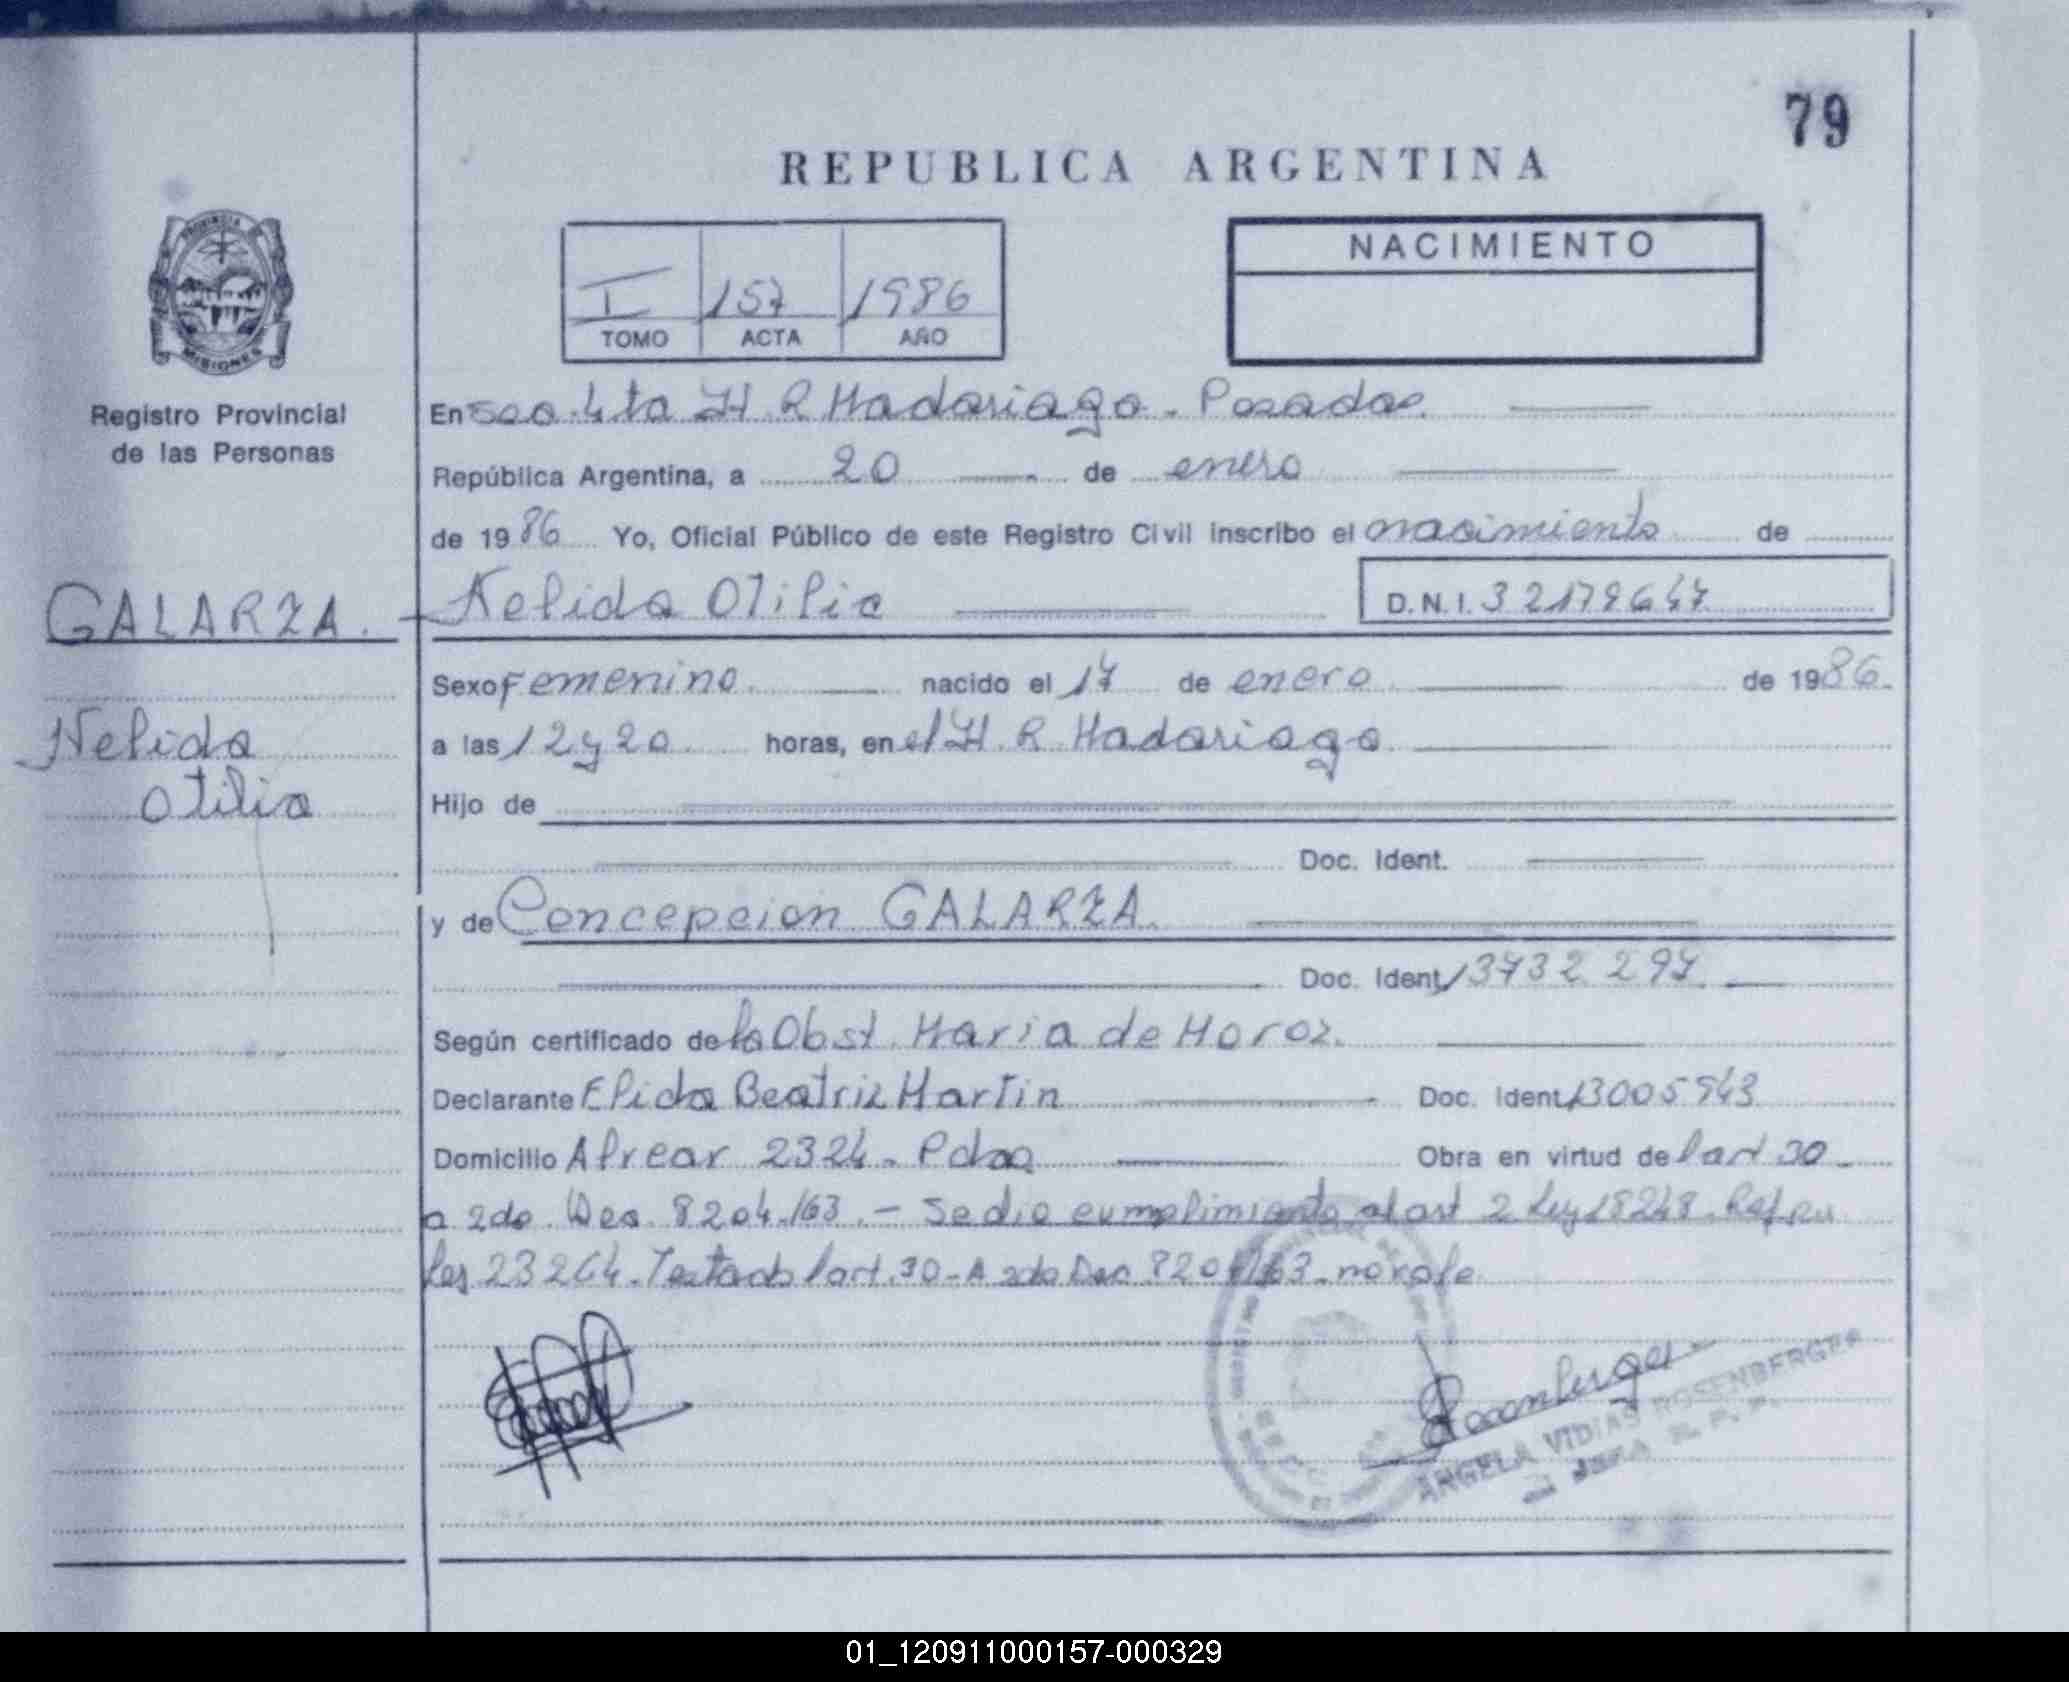 79
REPUBLICA ARGENTINA
NACIMIENTO
I 157 1986
TOMO ACTA AÑO
PROVINCIA
MISIONES
Registro Provincial
de las Personas
En Sec. 4ta H. R Madariaga. Posadas
República Argentina, a 20 de enero
de 1986 Yo, Oficial Público de este Registro Civil inscribo el nacimiento de
GALARZA. - Nelida Otilia D.N.I. 32179647
Sexo Femenino nacido el 17 de enero de 1986.
Nelida
a las 12 y 20 horas, en el H. R Madariaga
Otilia
Hijo de
Doc. Ident.
y de Concepcion GALARZA.
Doc. Ident. 13732 297
Según certificado de la Obst. Maria de Moroz.
Declarante Elida Beatriz Martin Doc. Ident. 13005943
Domicilio Alvear 2324. Pdas Obra en virtud del art 30
a 2do. Dec. 8204/63. - Se dio cumplimiento al art 2 Ley 18248. Ref. su
Ley 23264. Testado art. 30 - A 2do Dec 8204/63 - no vale
Rosemberger
ANGELA VIDIAS ROSENBERGER
R. P. P.
01_120911000157-000329